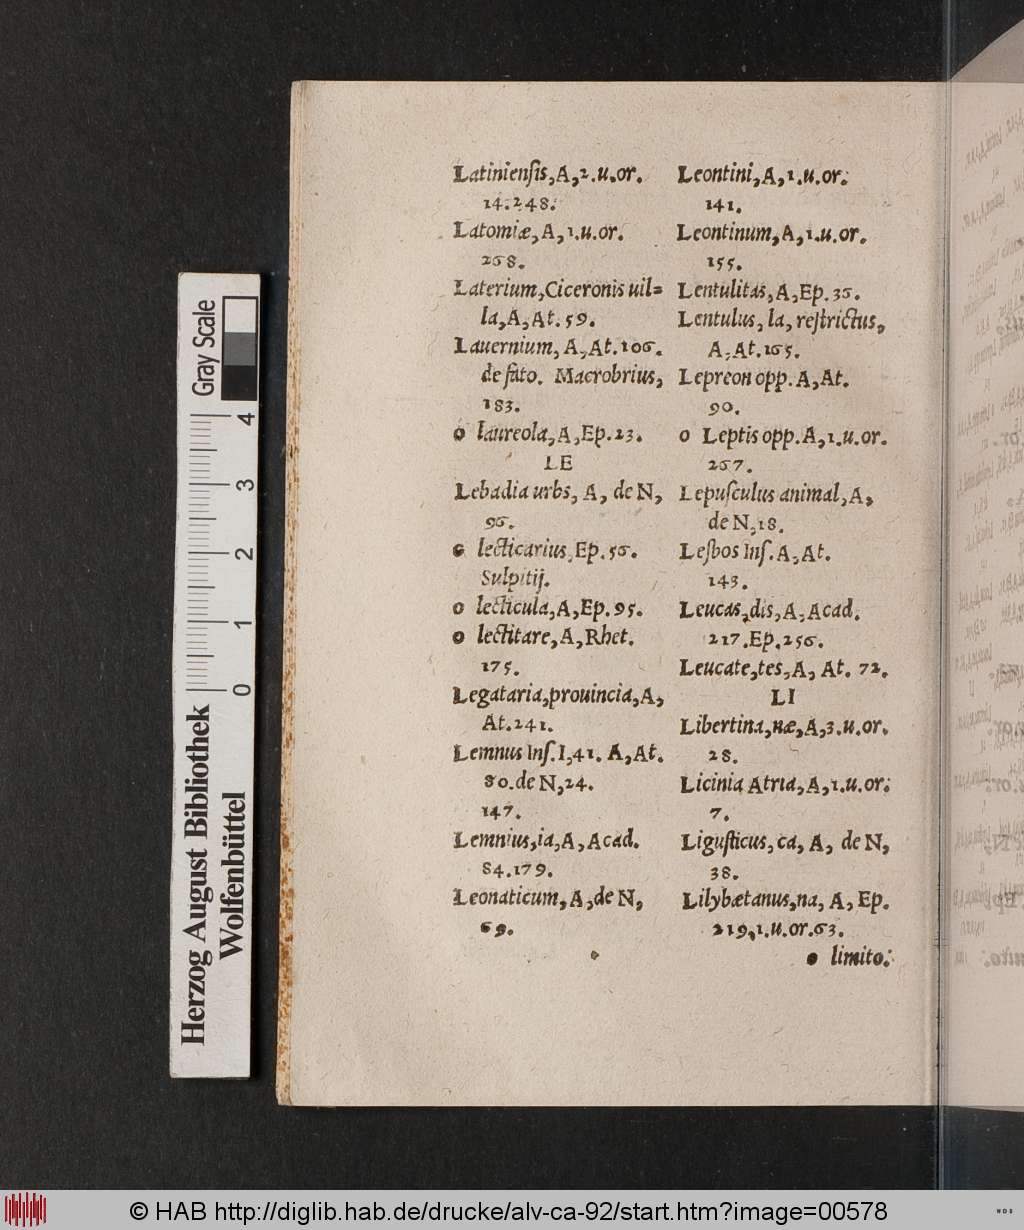 Latinienſis, A, 2. u. or.
14. 248.
Latomiæ, A, 1. u. or.
268.
Laterium, Ciceronis uil=
la, A, At. 59.
Lauernium, A, At. 106.
de fato. Macrobrius,
183.
o laureola, A, Ep. 23.
LE
Lebadia urbs, A, de N,
96.
o lecticarius, Ep. 56.
Sulpitij.
o lecticula, A, Ep. 95.
o lectitare, A, Rhet.
175.
Legataria, prouincia, A,
At. 241.
Lemnus Inſ. I, 41. A, At.
80. de N, 24.
147.
Lemnius, ia, A, Acad.
84. 179.
Leonaticum, A, de N,
69.
Leontini, A, 1. u. or.
141.
Leontinum, A, 1. u. or.
155.
Lentulitas, A, Ep. 36.
Lentulus, la, reſtrictus,
A, At. 165.
Lepreon opp. A, At.
90.
o Leptis opp. A, 1. u. or.
267.
Lepuſculus animal, A,
de N, 18.
Leſbos Inſ. A, At.
143.
Leucas, dis, A, Acad.
217. Ep. 256.
Leucate, tes, A, At. 72.
LI
Libertina, næ, A, 3. u. or.
28.
Licinia Atria, A, 1. u. or.
7.
Liguſticus, ca, A, de N,
38.
Lilybætanus, na, A, Ep.
219, 1. u. or. 63.
o limito.
Gray Scale
4
3
2
1
0
Herzog August Bibliothek
Wolfenbüttel
© HAB http://diglib.hab.de/drucke/alv-ca-92/start.htm?image=00578